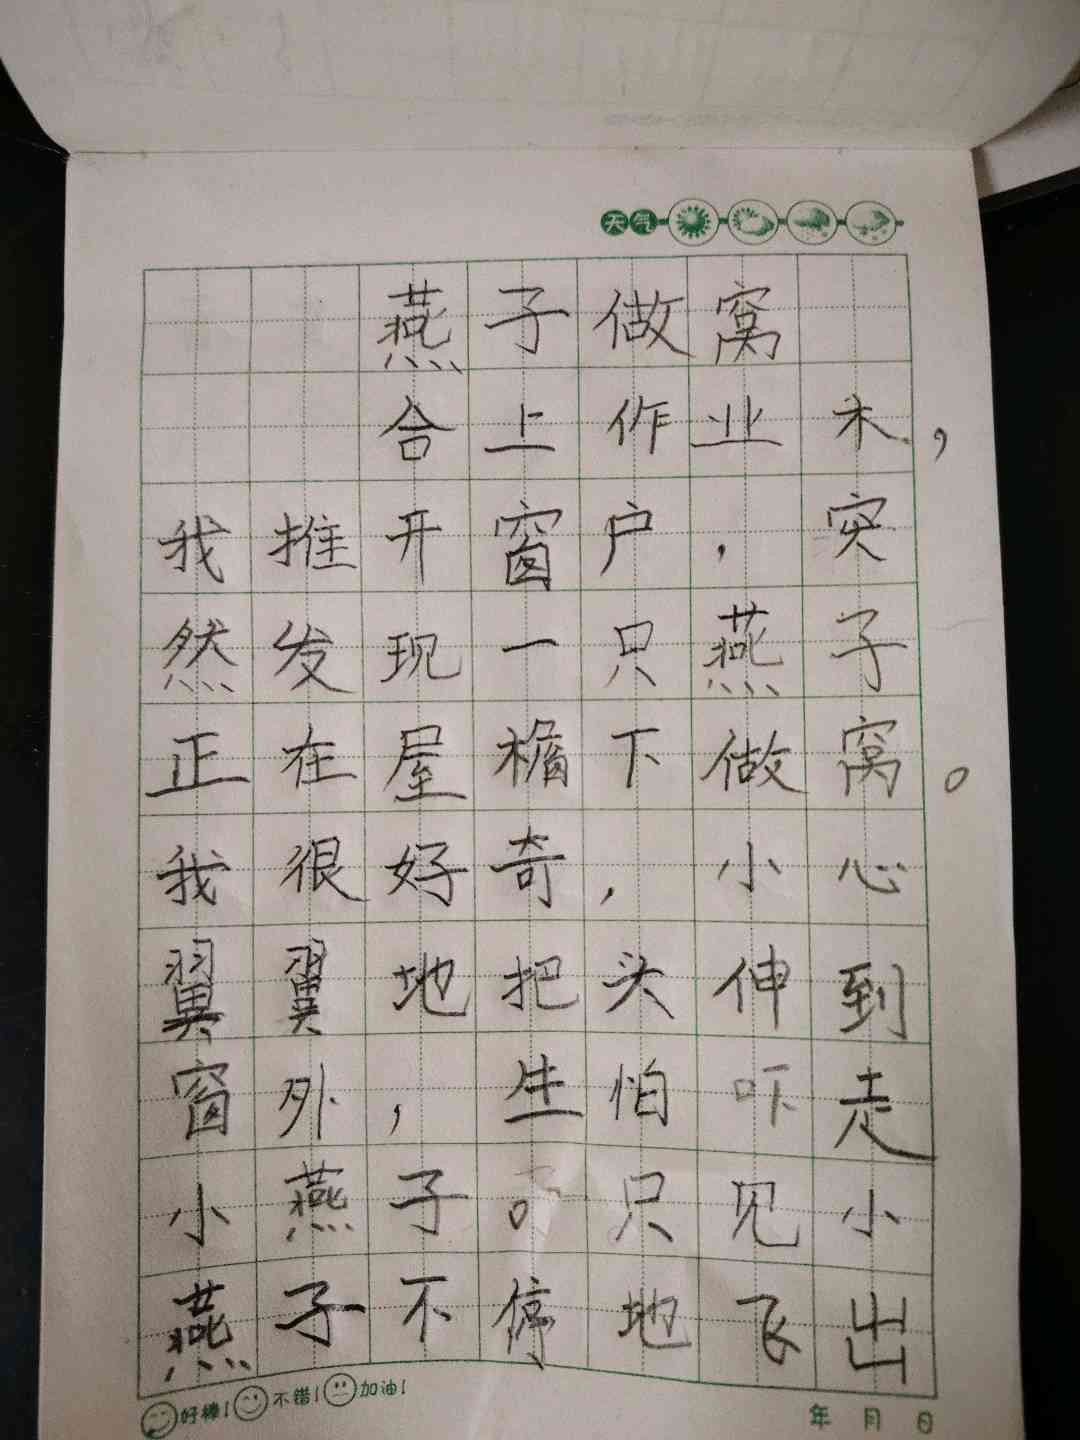 天气
燕子做窝
合上作业木，
我推开窗户，突
然发现一只燕子
正在屋檐下做窝。
我很好奇，小心
翼翼地把头伸到
窗外，生怕吓走
小燕子。只见小
燕子不停地飞出
好棒！不错！加油！
年 月 日